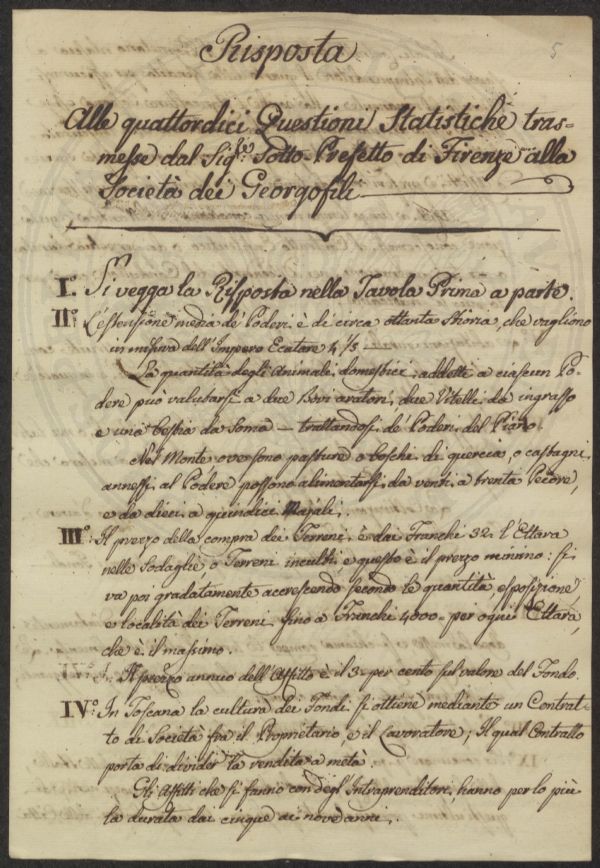 5
Risposta
Alle quattordici Questioni Statistiche tras=
messe dal Sigre. Sotto-Prefetto di Firenze alla
Società dei Georgofili
I°. Si vegga la Risposta nella Tavola Prima a parte.
II°. L'estensione media de' Poderi è di circa ottanta Stiora, che vagliono
in misura dell'Impero Ecatare 4 1/5
La quantità degli Animali domestici addetti a ciascun Po-
dere può valutarsi a due Bovi aratori, due Vitelli da ingrasso
e una bestia da Soma — trattandosi de' Poderi del Piano.
Nel Monte ove sono pasture o boschi di quercia, o castagni
annessi al Podere possono alimentarsi da venti a trenta Pecore,
e da dieci a quindici Majali.
III°: Il prezzo della compra dei Terreni è dai Franchi 32. l'Ettara
nelle Sodaglie, o Terreni incolti, e questo è il prezzo minimo: si
va poi gradatamente accrescendo secondo le quantità, esposizione,
e località dei Terreni fino a Franchi 4000- per ogni Ettara,
che è il massimo.
Il prezzo annuo dell'Affitto è il 3. per cento sul valore del Fondo.
IV°: In Toscana la cultura dei Fondi si ottiene mediante un Contrat-
to di Società fra il Proprietario, e il Lavoratore; Il qual Contratto
porta di divider la vendita a metà.
Gli Affitti che si fanno con degl'Intraprenditori, hanno per lo più
la durata dai cinque ai nove anni.